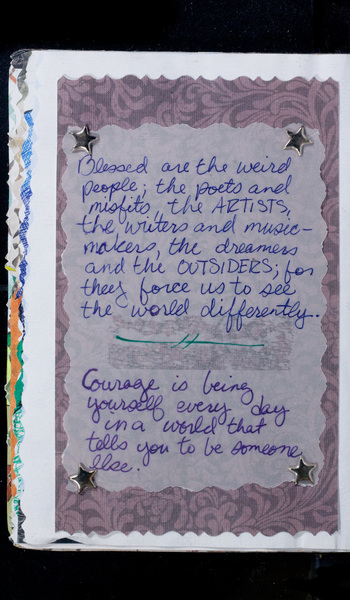 Blessed are the weird
people; the poets and
misfits, the ARTISTS,
the writers and music-
makers, the dreamers
and the OUTSIDERS; for
they force us to see
the world differently.
Courage is being
yourself every day
in a world that
tells you to be someone
else.